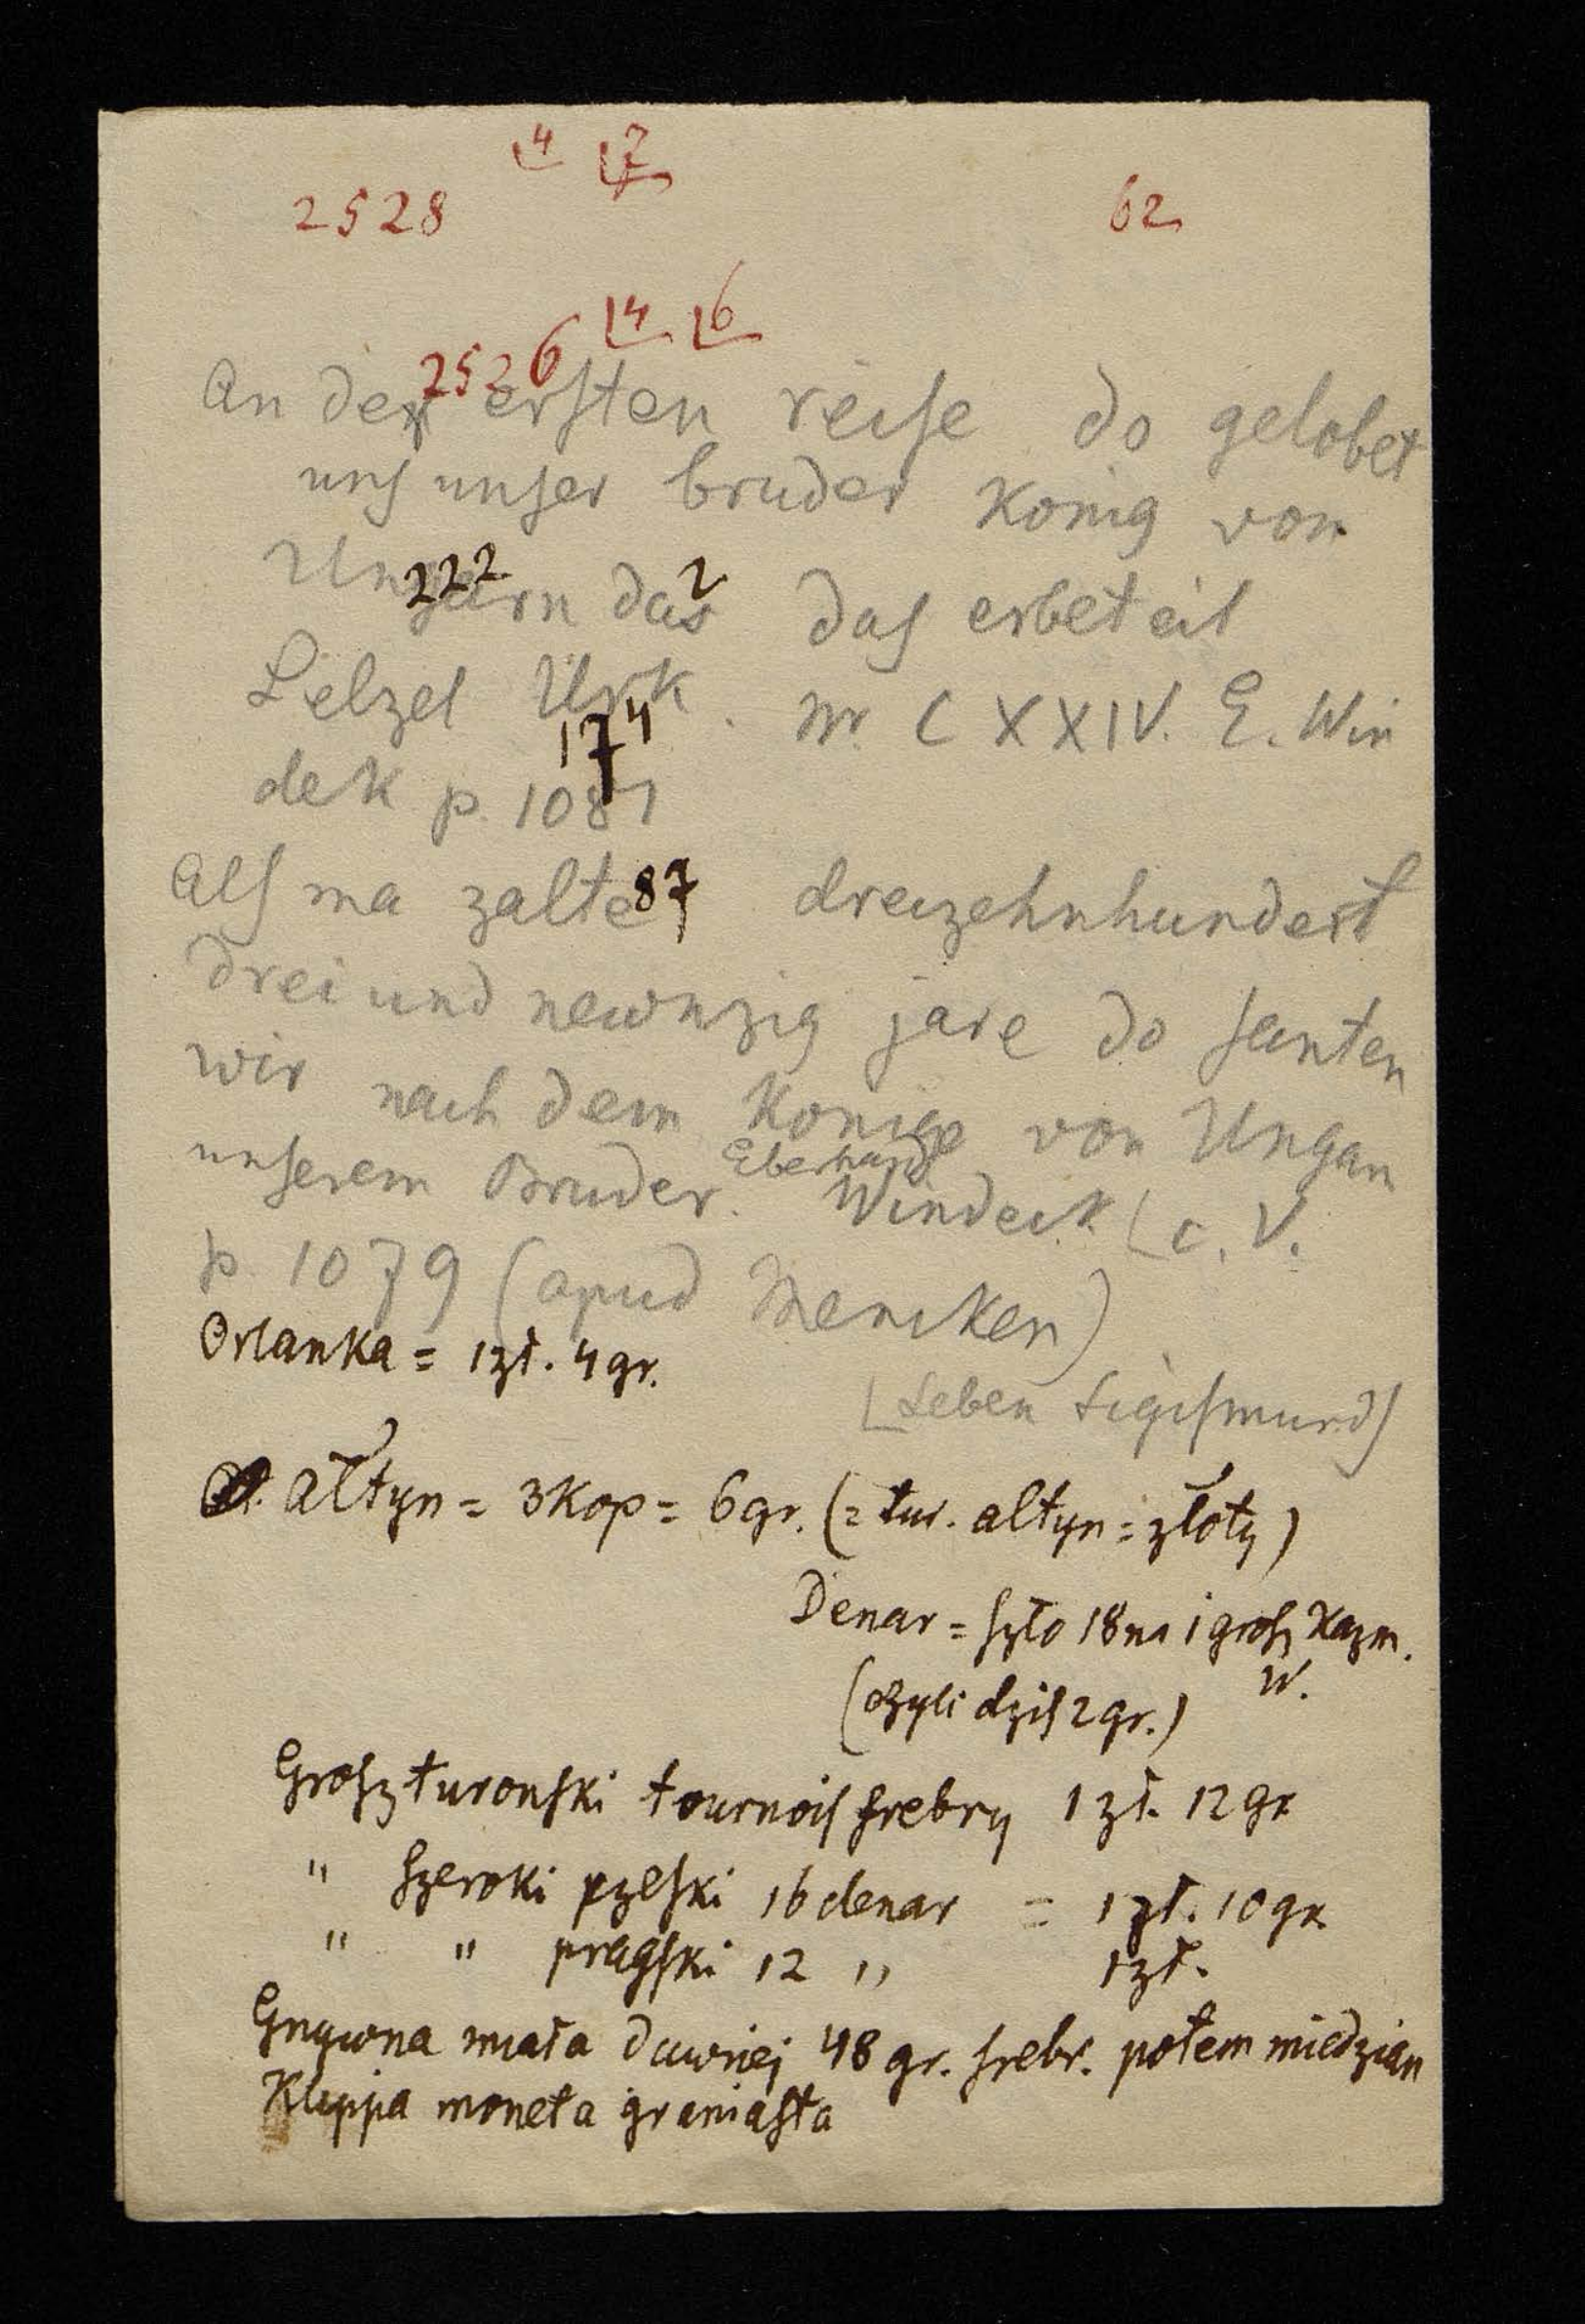 4 7
2528 62
4 6
2526
An der ersten reise do gelobet
uns unser bruder König von
222 2
Ungarn das das erbeteil
Pelzel Urk. Nr. CXXIV. E. Win
174
dek p. 1081
Als ma zalte 87 dreizehnhundert
drei und newnzig jare do santen
wir nach dem Konige von Ungarn
Eberhard
unserem Bruder. Windeck c. V.
p 1079 (apud Mencken)
Orlanka = 1 zł. 4 gr.
[Leben Sigismunds
Ałtyn = 3 kop = 6 gr. (= tur. altyn = złoty)
Denar = szło 18 na 1 grosz Kazm.
W.
(czyli dziś 2 gr.)
Grosz turonski tournois srebrny 1 zł. 12 gr
" szeroki czeski 16 denar = 1 zł. 10 gr.
" " pragski 12 " 1 zł.
Grzywna miała dawniej 48 gr. srebr. potem miedzian
Klippa moneta graniasta